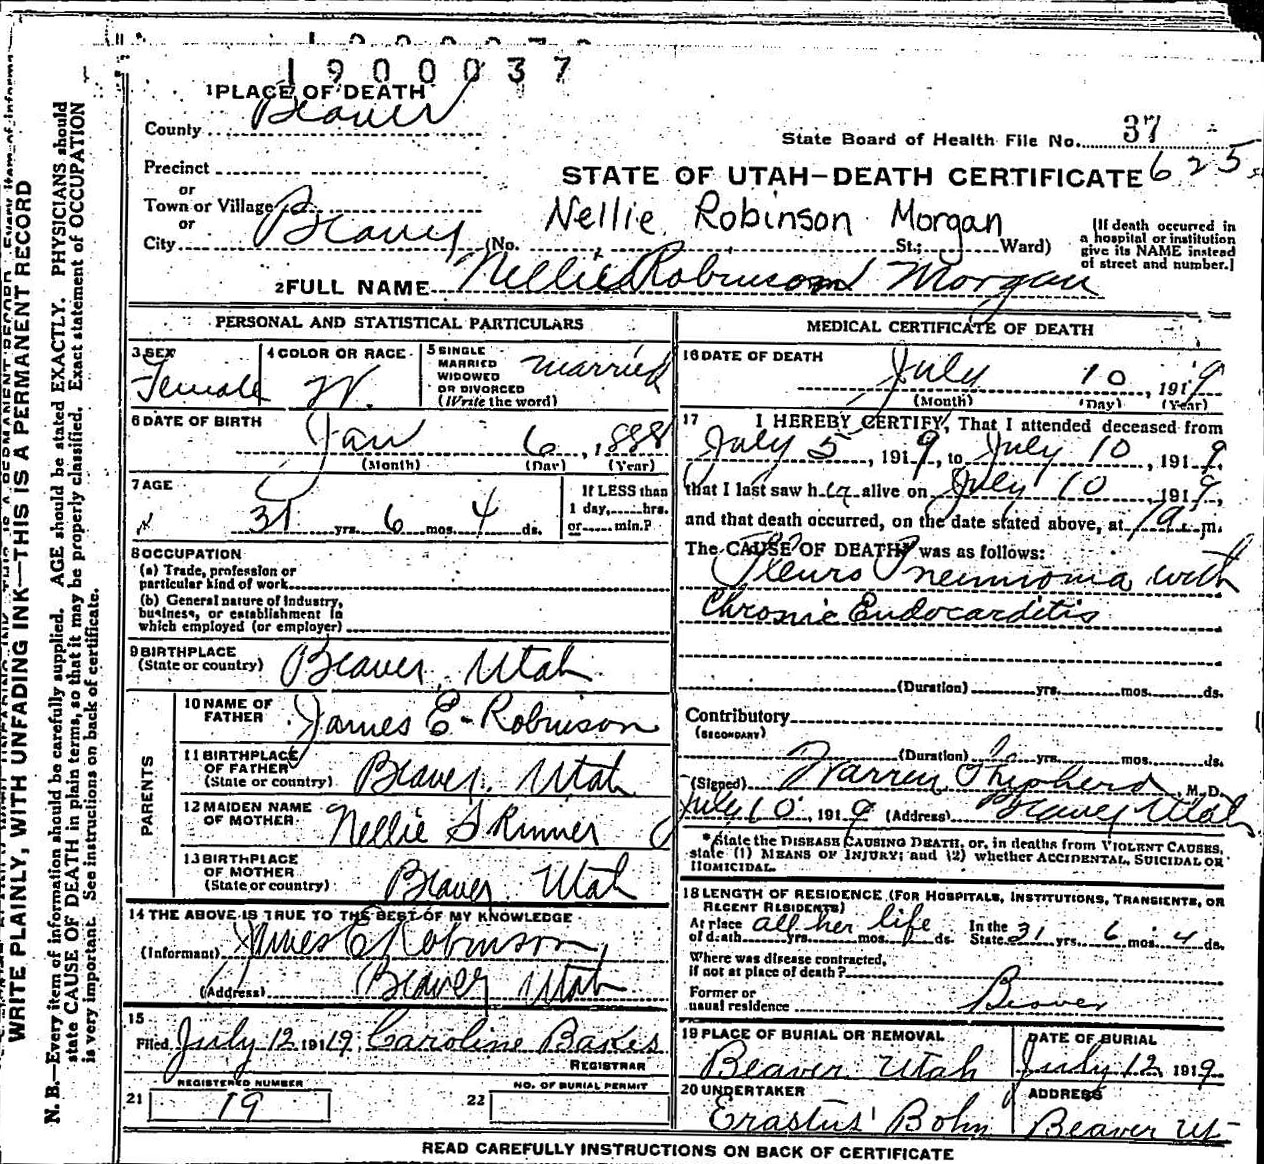 1900037
1 PLACE OF DEATH
County Beaver
State Board of Health File No. 37
625
Precinct
or
STATE OF UTAH—DEATH CERTIFICATE
Town or Village
or
Nellie Robinson Morgan
City Beaver (No. St.; Ward)
(If death occurred in
a hospital or institution
give its NAME instead
of street and number.)
2 FULL NAME Nellie Robinson Morgan
PERSONAL AND STATISTICAL PARTICULARS
3 SEX
Female
4 COLOR OR RACE
W.
5 SINGLE
MARRIED
WIDOWED
OR DIVORCED
(Write the word)
married
6 DATE OF BIRTH
Jan 6, 1888
(Month) (Day) (Year)
7 AGE
31 yrs. 6 mos. 4 ds.
If LESS than
1 day, hrs.
or min.?
8 OCCUPATION
(a) Trade, profession or
particular kind of work
(b) General nature of industry,
business, or establishment in
which employed (or employer)
9 BIRTHPLACE
(State or country) Beaver, Utah
PARENTS
10 NAME OF
FATHER James E. Robinson
11 BIRTHPLACE
OF FATHER
(State or country) Beaver, Utah
12 MAIDEN NAME
OF MOTHER Nellie Skinner
13 BIRTHPLACE
OF MOTHER
(State or country) Beaver Utah
14 THE ABOVE IS TRUE TO THE BEST OF MY KNOWLEDGE
(Informant) James E Robinson,
(Address) Beaver Utah
15
Filed July 12 1919 Caroline Bakes
REGISTRAR
REGISTERED NUMBER
21 19
NO. OF BURIAL PERMIT
22
MEDICAL CERTIFICATE OF DEATH
16 DATE OF DEATH
July 10, 1919
(Month) (Day) (Year)
17 I HEREBY CERTIFY, That I attended deceased from
July 5, 1919, to July 10, 1919,
that I last saw her alive on July 10, 1919,
and that death occurred, on the date stated above, at m.
The CAUSE OF DEATH* was as follows:
Pleuro Pneumonia with
Chronic Endocarditis
(Duration) yrs. mos. ds.
Contributory
(SECONDARY)
(Duration) yrs. mos. ds.
(Signed) Warren Shepherd, M.D.
July 10, 1919 (Address) Beaver Utah
*State the DISEASE CAUSING DEATH, or, in deaths from VIOLENT CAUSES,
state (1) MEANS OF INJURY; and (2) whether ACCIDENTAL, SUICIDAL OR
HOMICIDAL.
18 LENGTH OF RESIDENCE (FOR HOSPITALS, INSTITUTIONS, TRANSIENTS, OR
RECENT RESIDENTS)
At place
of death all her life yrs. mos. ds. In the
State 31 yrs. 6 mos. 4 ds.
Where was disease contracted,
if not at place of death?
Former or
usual residence Beaver
19 PLACE OF BURIAL OR REMOVAL
Beaver Utah
DATE OF BURIAL
July 12, 1919
20 UNDERTAKER
Erastus Bohn
ADDRESS
Beaver Ut
READ CAREFULLY INSTRUCTIONS ON BACK OF CERTIFICATE
WRITE PLAINLY, WITH UNFADING INK—THIS IS A PERMANENT RECORD
N. B.—Every item of information should be carefully supplied. AGE should be stated EXACTLY. PHYSICIANS should
state CAUSE OF DEATH in plain terms, so that it may be properly classified. Exact statement of OCCUPATION
is very important. See instructions on back of certificate.